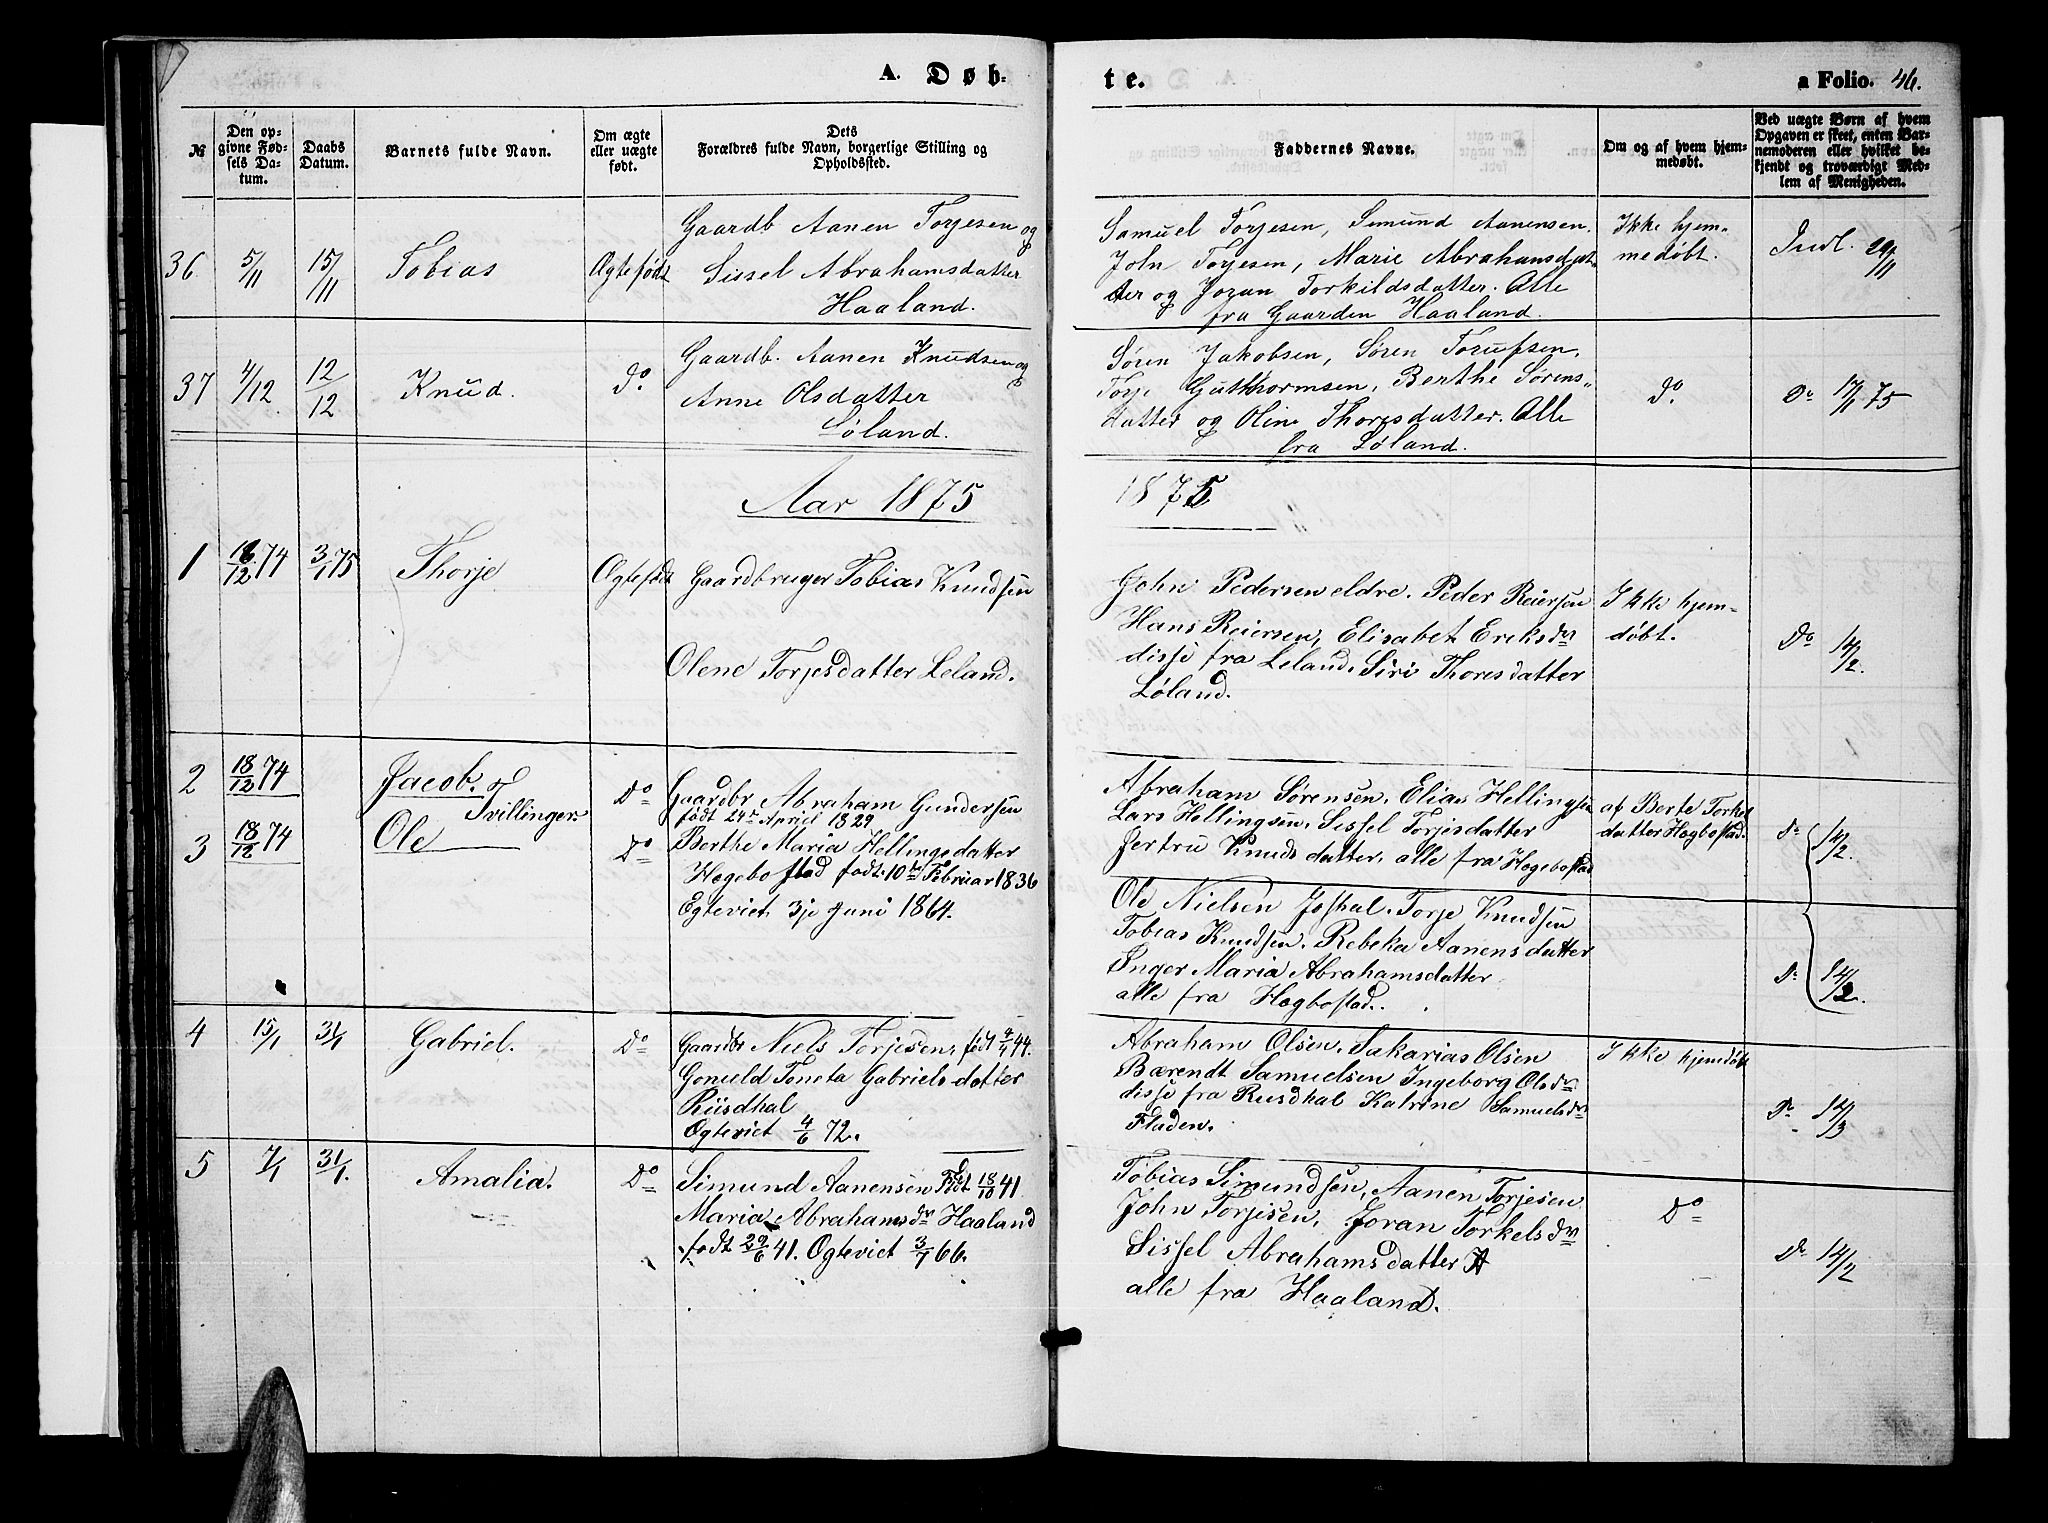 A. Døb-
te.
a Folio. 46.
№
Den op-
givne Fød-
sels Da-
tum.
Daabs
Datum.
Barnets fulde Navn.
Om ægte
eller uægte
født.
Dets
Forældres fulde Navn, borgerlige Stilling og
Opholdssted.
Faddernes Navne.
Om og af hvem hjem-
medøbt.
Ved uægte Børn af hvem
Opgaven er skeet, enten Bar-
nemoderen eller hvilket be-
kjendt og troværdigt Med-
lem af Menigheden.
36. 5/11 15/11 Tobias Ægtefødt
Gaardb Aanen Torjesen og
Sissel Abrahamsdatter
Haaland.
Samuel Torjesen, Simund Aanensen.
John Torjesen, Marie Abrahamsdat-
ter og Joran Torkildsdatter. Alle
fra Gaarden Haaland.
Ikke hjem-
medøbt.
Indl. 29/11
37 4/12 12/12 Knud. do.
Gaardb. Aanen Knudsen og
Anne Olsdatter
Løland.
Søren Jakobsen, Søren
Torje Guthormsen, Berthe Sørens-
datter og Oline Thoresdatter. Alle
fra Løland.
do.
Do 17/1 75
Aar 1875
1875
1 18/12 74 3/1 75 Thorje Ægtefødt
Gaardbruger Tobias Knudsen
Olene Torjesdatter Leland.
John Pedersen eldre. Peder Reiersen
Hans Reiersen, Elisabet Ereksdr
disse fra Leland. Siri Thoresdatter
Løland.
Ikke hjem-
døbt.
Do 14/2.
2 18/12 74 Jacob. Do
Tvillinger.
3 18/12 74 Ole Do
Gaardbr Abraham Gundersen
født 24de April 1829
Berthe Maria Hellingsdatter
Hægebostad født 10de Februar 1836
Egteviet 3je Juni 1864.
Abraham Sørensen, Elias Hellingsen
Lars Hellingsen, Sissel Torjesdatter
Jertru Knudsdatter, alle fra Hægebostad
af Berte Torkel
datter Hægbostad.
Do 14/2.
Ole Nielsen Josdal. Torje Knudsen
Tobias Knudsen, Rebeka Aanensdatter
Inger Maria Abrahamsdatter
alle fra Hægbostad.
Do 14/2.
4 15/1 31/1 Gabriel. Do
Gaardbr Niels Torjesen, født 4/4 44.
Gonuld Toneta Gabrielsdatter
Riisdhal
Ogteviet 4/6 72.
Abraham Olsen. Sakarias Olsen
Bærendt Samuelsen Ingeborg Olsdr
disse fra Rusdhal Katrine Samuelsdr
Fladen.
Ikke hjemdøbt
Do 14/3
5 7/1 31/1. Amalia. Do
Simund Aanensen Født 18/10 41.
Maria Abrahamsdr Haaland
født 29/6 41. Ogteviet 3/7 66.
Tobias Simundsen, Aanen Torjesen
John Torjesen, Joran Torkelsdr
Sissel Abrahamsdatter
alle fra Haaland.
Do
Do 14/2